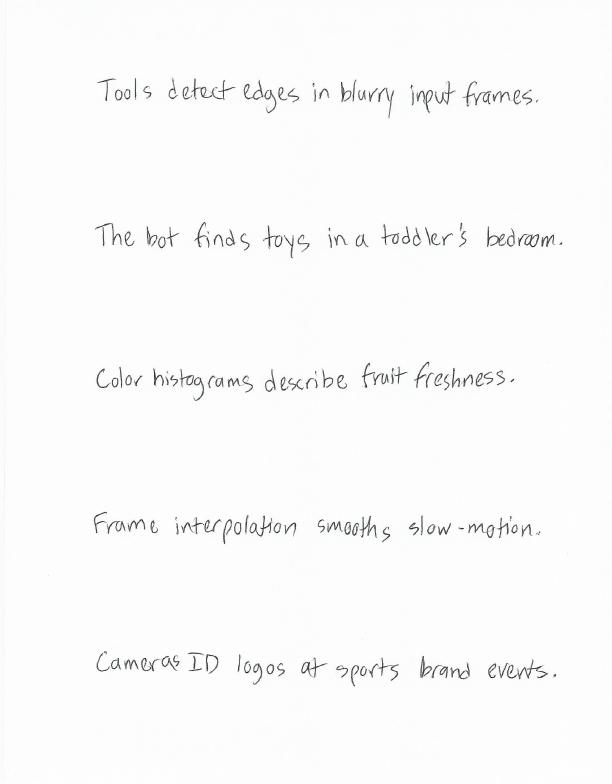 Tools detect edges in blurry input frames.
The bot finds toys in a toddler's bedroom.
Color histograms describe fruit freshness.
Frame interpolation smooths slow-motion.
Cameras ID logos at sports brand events.